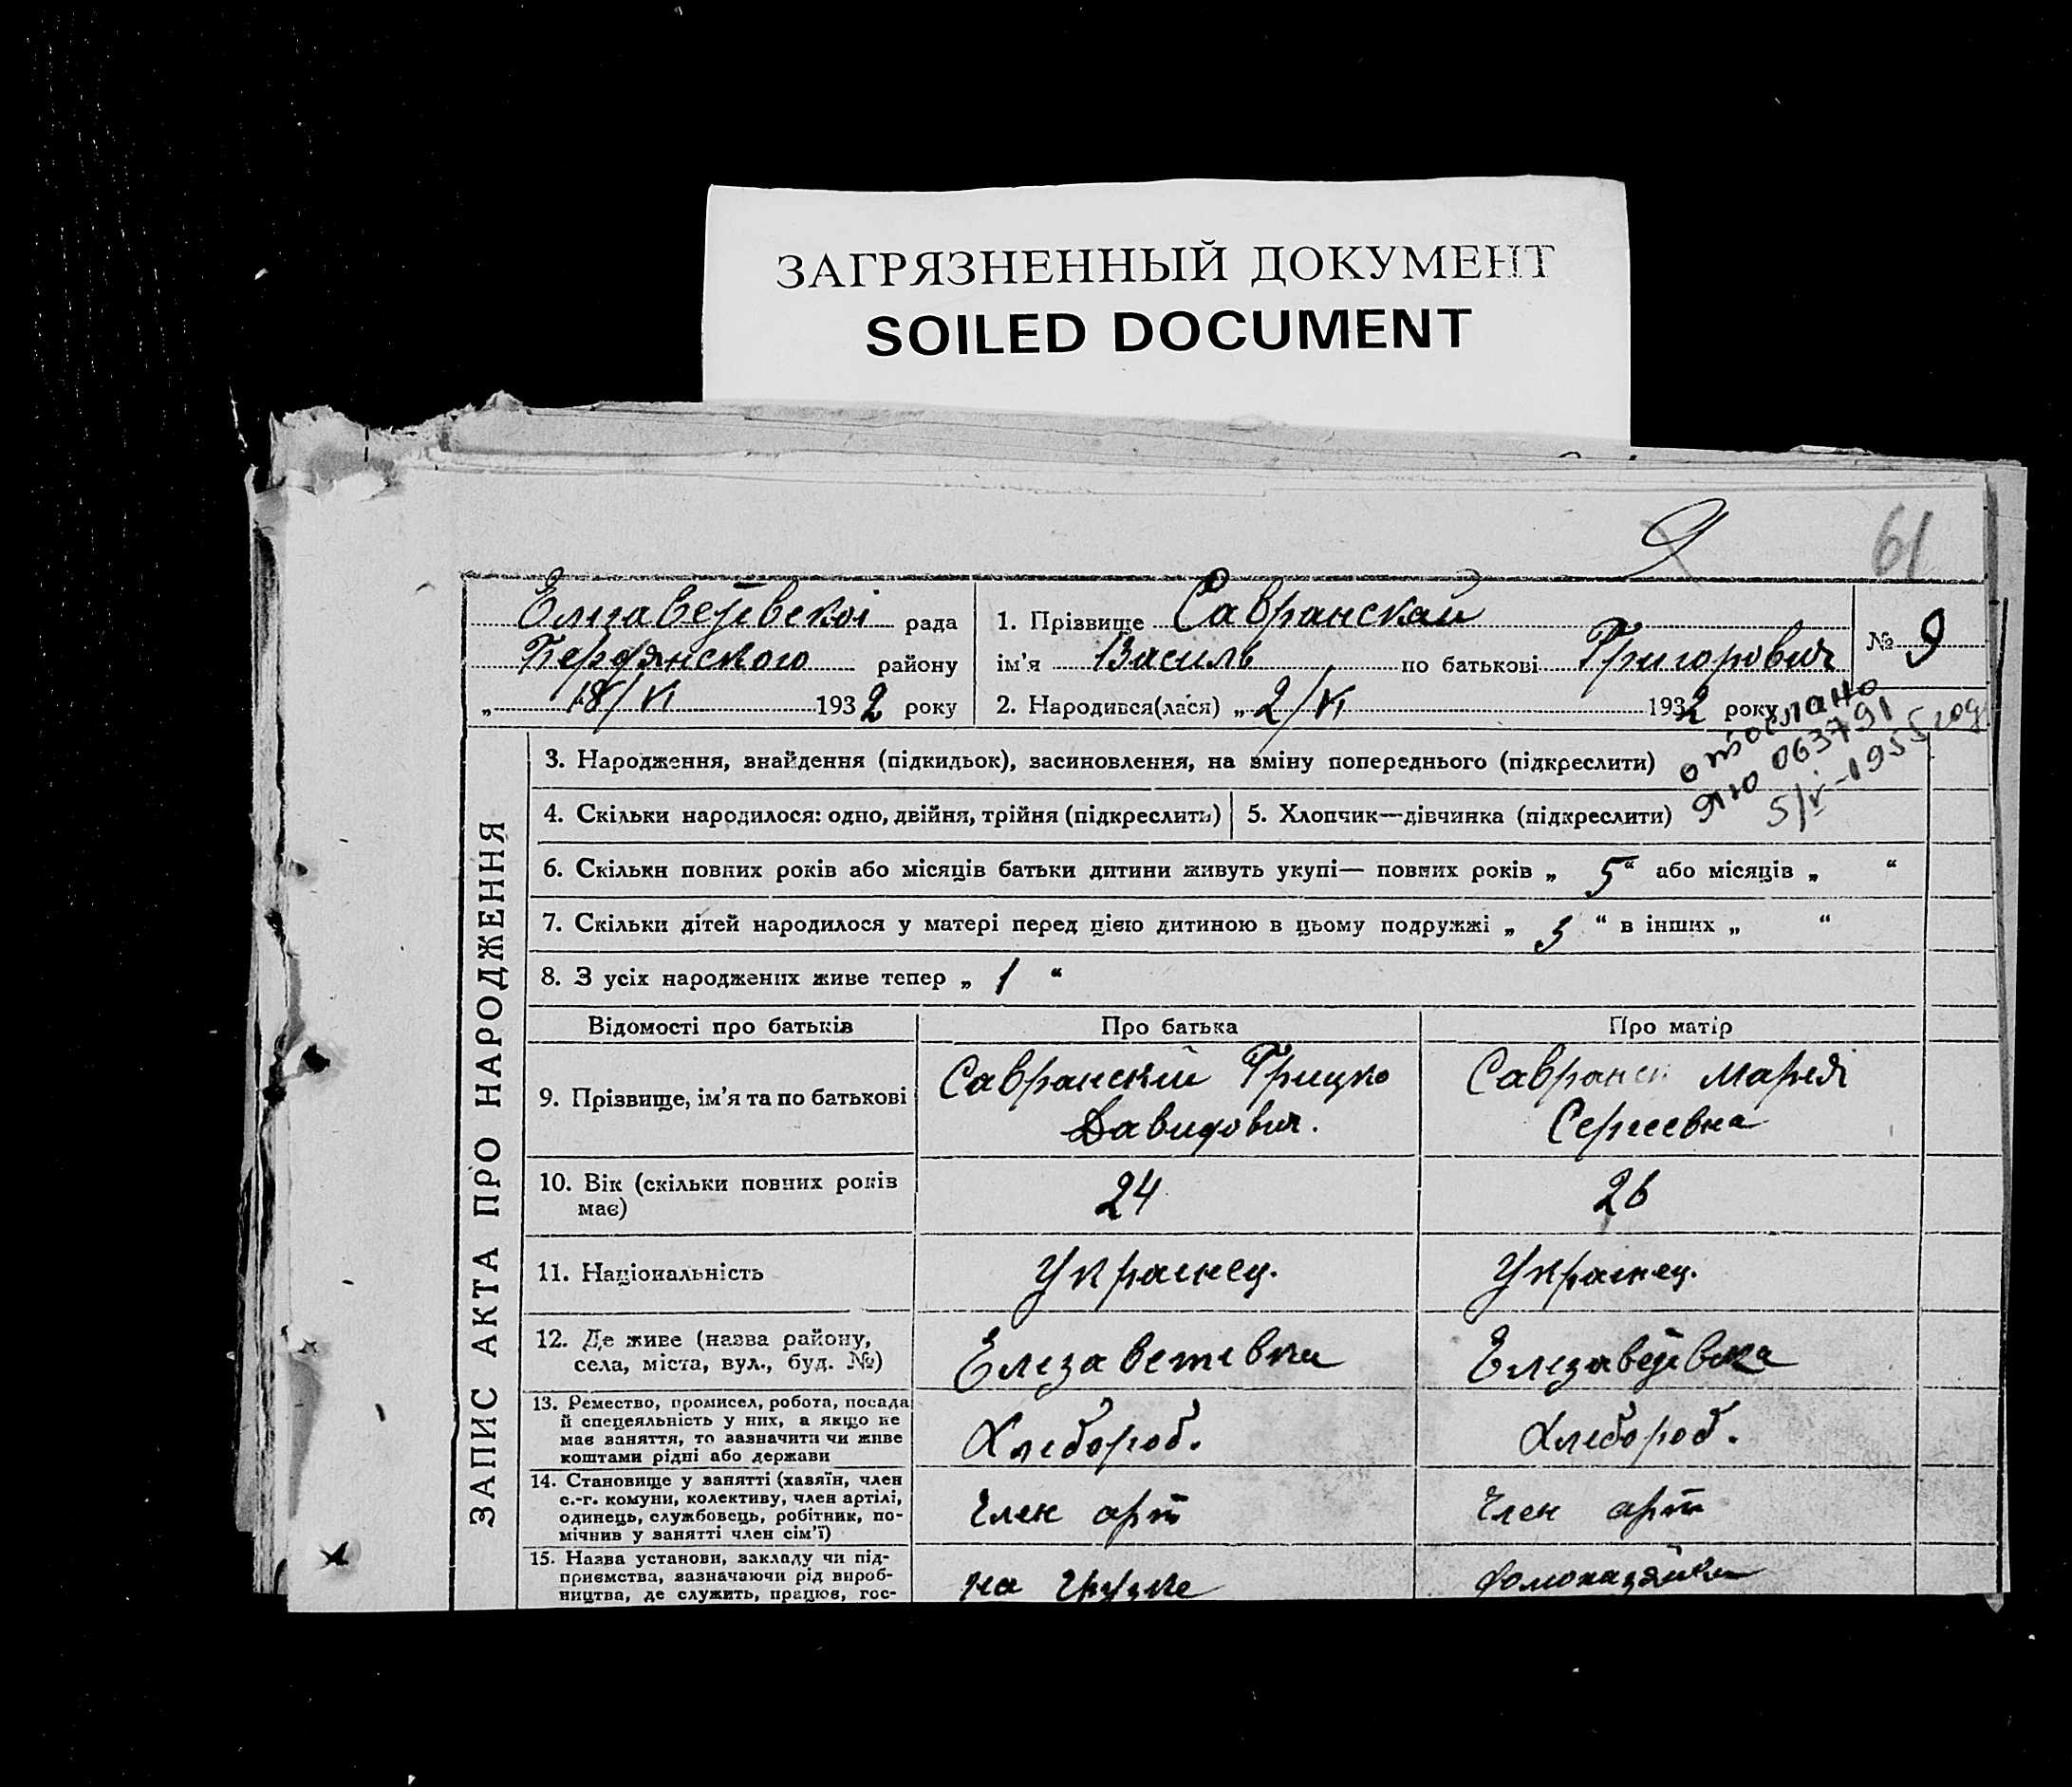 ЗАГРЯЗНЕННЫЙ ДОКУМЕНТ
SOILED DOCUMENT
9
61
Елізаветівскоі рада
Бердянского району
„ 18/VI 1932 року
1. Прізвище Савранский
ім'я Василь по батькові Григорович
2. Народився(лася) „ 2/VI 1932 року
№ 9
отослано
ЯЮ 063791
5/V-1955 год
ЗАПИС АКТА ПРО НАРОДЖЕННЯ
3. Народження, знайдення (підкидьок), засиновлення, на зміну попереднього (підкреслити)
4. Скільки народилося: одно, двійня, трійня (підкреслить)
5. Хлопчик—дівчинка (підкреслити)
6. Скільки повних років або місяців батьки дитини живуть укупі— повних років „ 5 “ або місяців „ “
7. Скільки дітей народилося у матері перед цією дитиною в цьому подружжі „ 3 “ в інших „ “
8. З усіх народжених живе тепер „ 1 “
Відомості про батьків Про батька Про матір
9. Прізвище, ім'я та по батькові
Савранский Грицко
Давидович.
Савранск Марія
Сергеевна
10. Вік (скільки повних років
має)
24
26
11. Національність
Украінец.
Украінец.
12. Де живе (назва району,
села, міста, вул., буд. №)
Елезаветевка
Елезаветівка
13. Ремество, промисел, робота, посада
й спецеяльність у них, а якщо не
має заняття, то зазначити чи живе
коштами рідні або держави
Хлебороб.
Хлебороб.
14. Становище у занятті (хазяїн, член
с.-г. комуни, колективу, член артілі,
одинець, службовець, робітник, по-
мічнив у занятті член сім'ї)
Член арт
Член арт
15. Назва установи, закладу чи під-
приємства, зазначаючи рід вироб-
ництва, де служить, працює, гос-
на
домохазяйка